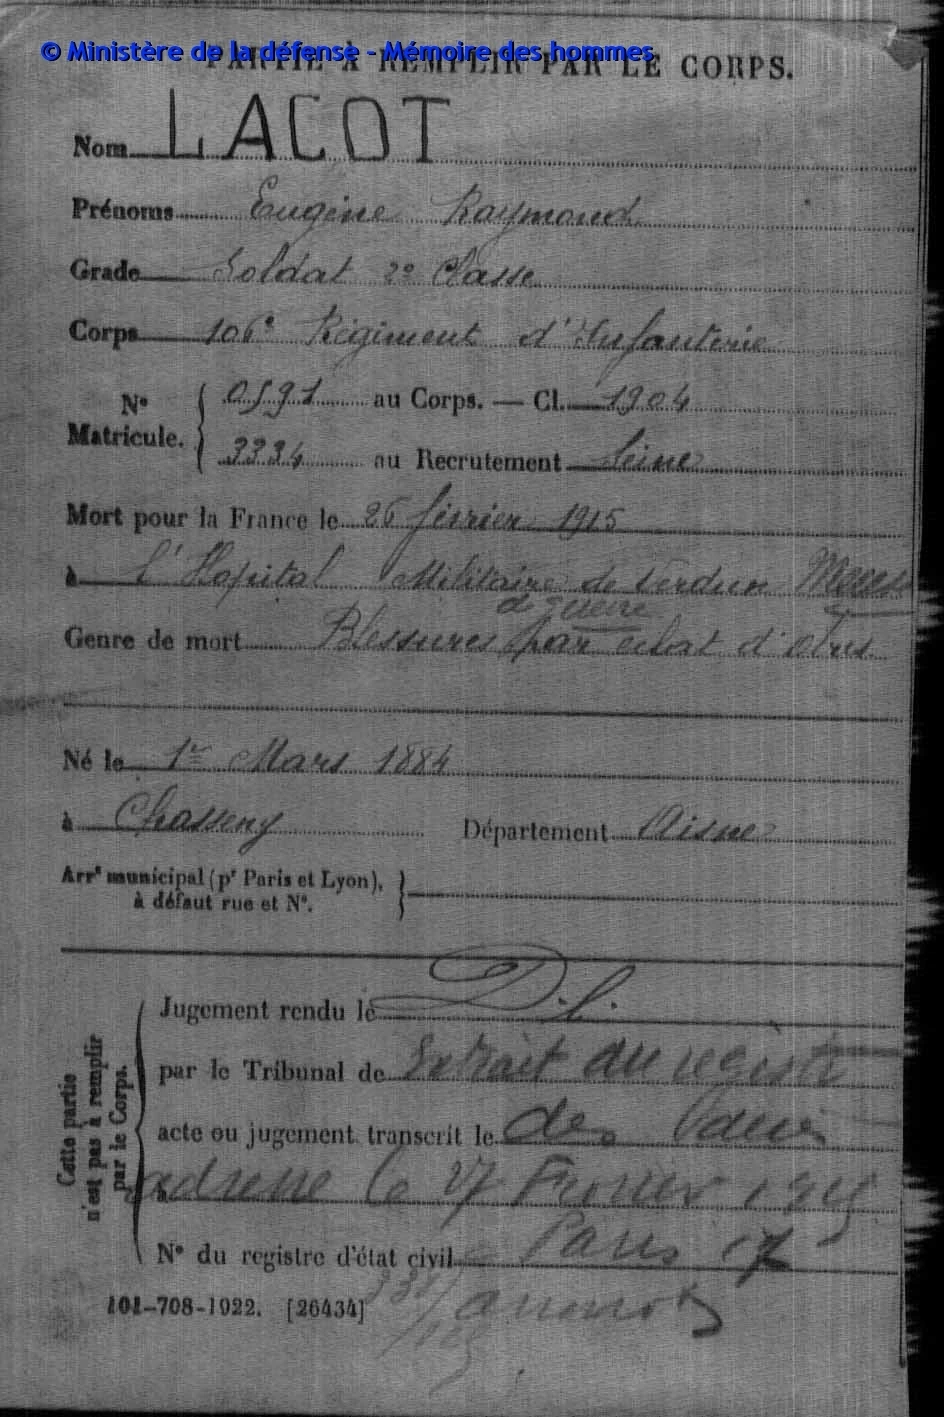 © Ministère de la défense - Mémoire des hommes
PARTIE À REMPLIR PAR LE CORPS.
Nom LACOT
Prénoms Eugène Raymond
Grade Soldat 2e Classe
Corps 106e Régiment d'Infanterie
No Matricule. { 0591 au Corps. — Cl. 1904
3334 au Recrutement Seine
Mort pour la France le 26 février 1915
à l'Hopital Militaire de Verdun Meuse
de guerre
Genre de mort Blessures par éclat d'obus
Né le 1er Mars 1884
à Chasseny Département Aisne
Arrt municipal (pr Paris et Lyon),
à défaut rue et No. }
Cette partie
n'est pas à remplir
par le Corps.
Jugement rendu le D.C.
par le Tribunal de Extrait du registre
acte ou jugement transcrit le des
à adressé le 27 Février 1915
No du registre d'état civil Paris 17
101-708-1922. [26434]